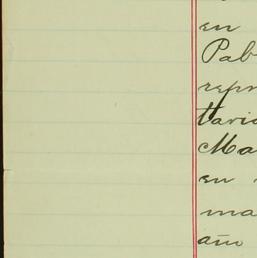 en
Pab
repr
tario
Ma
en
ma
año